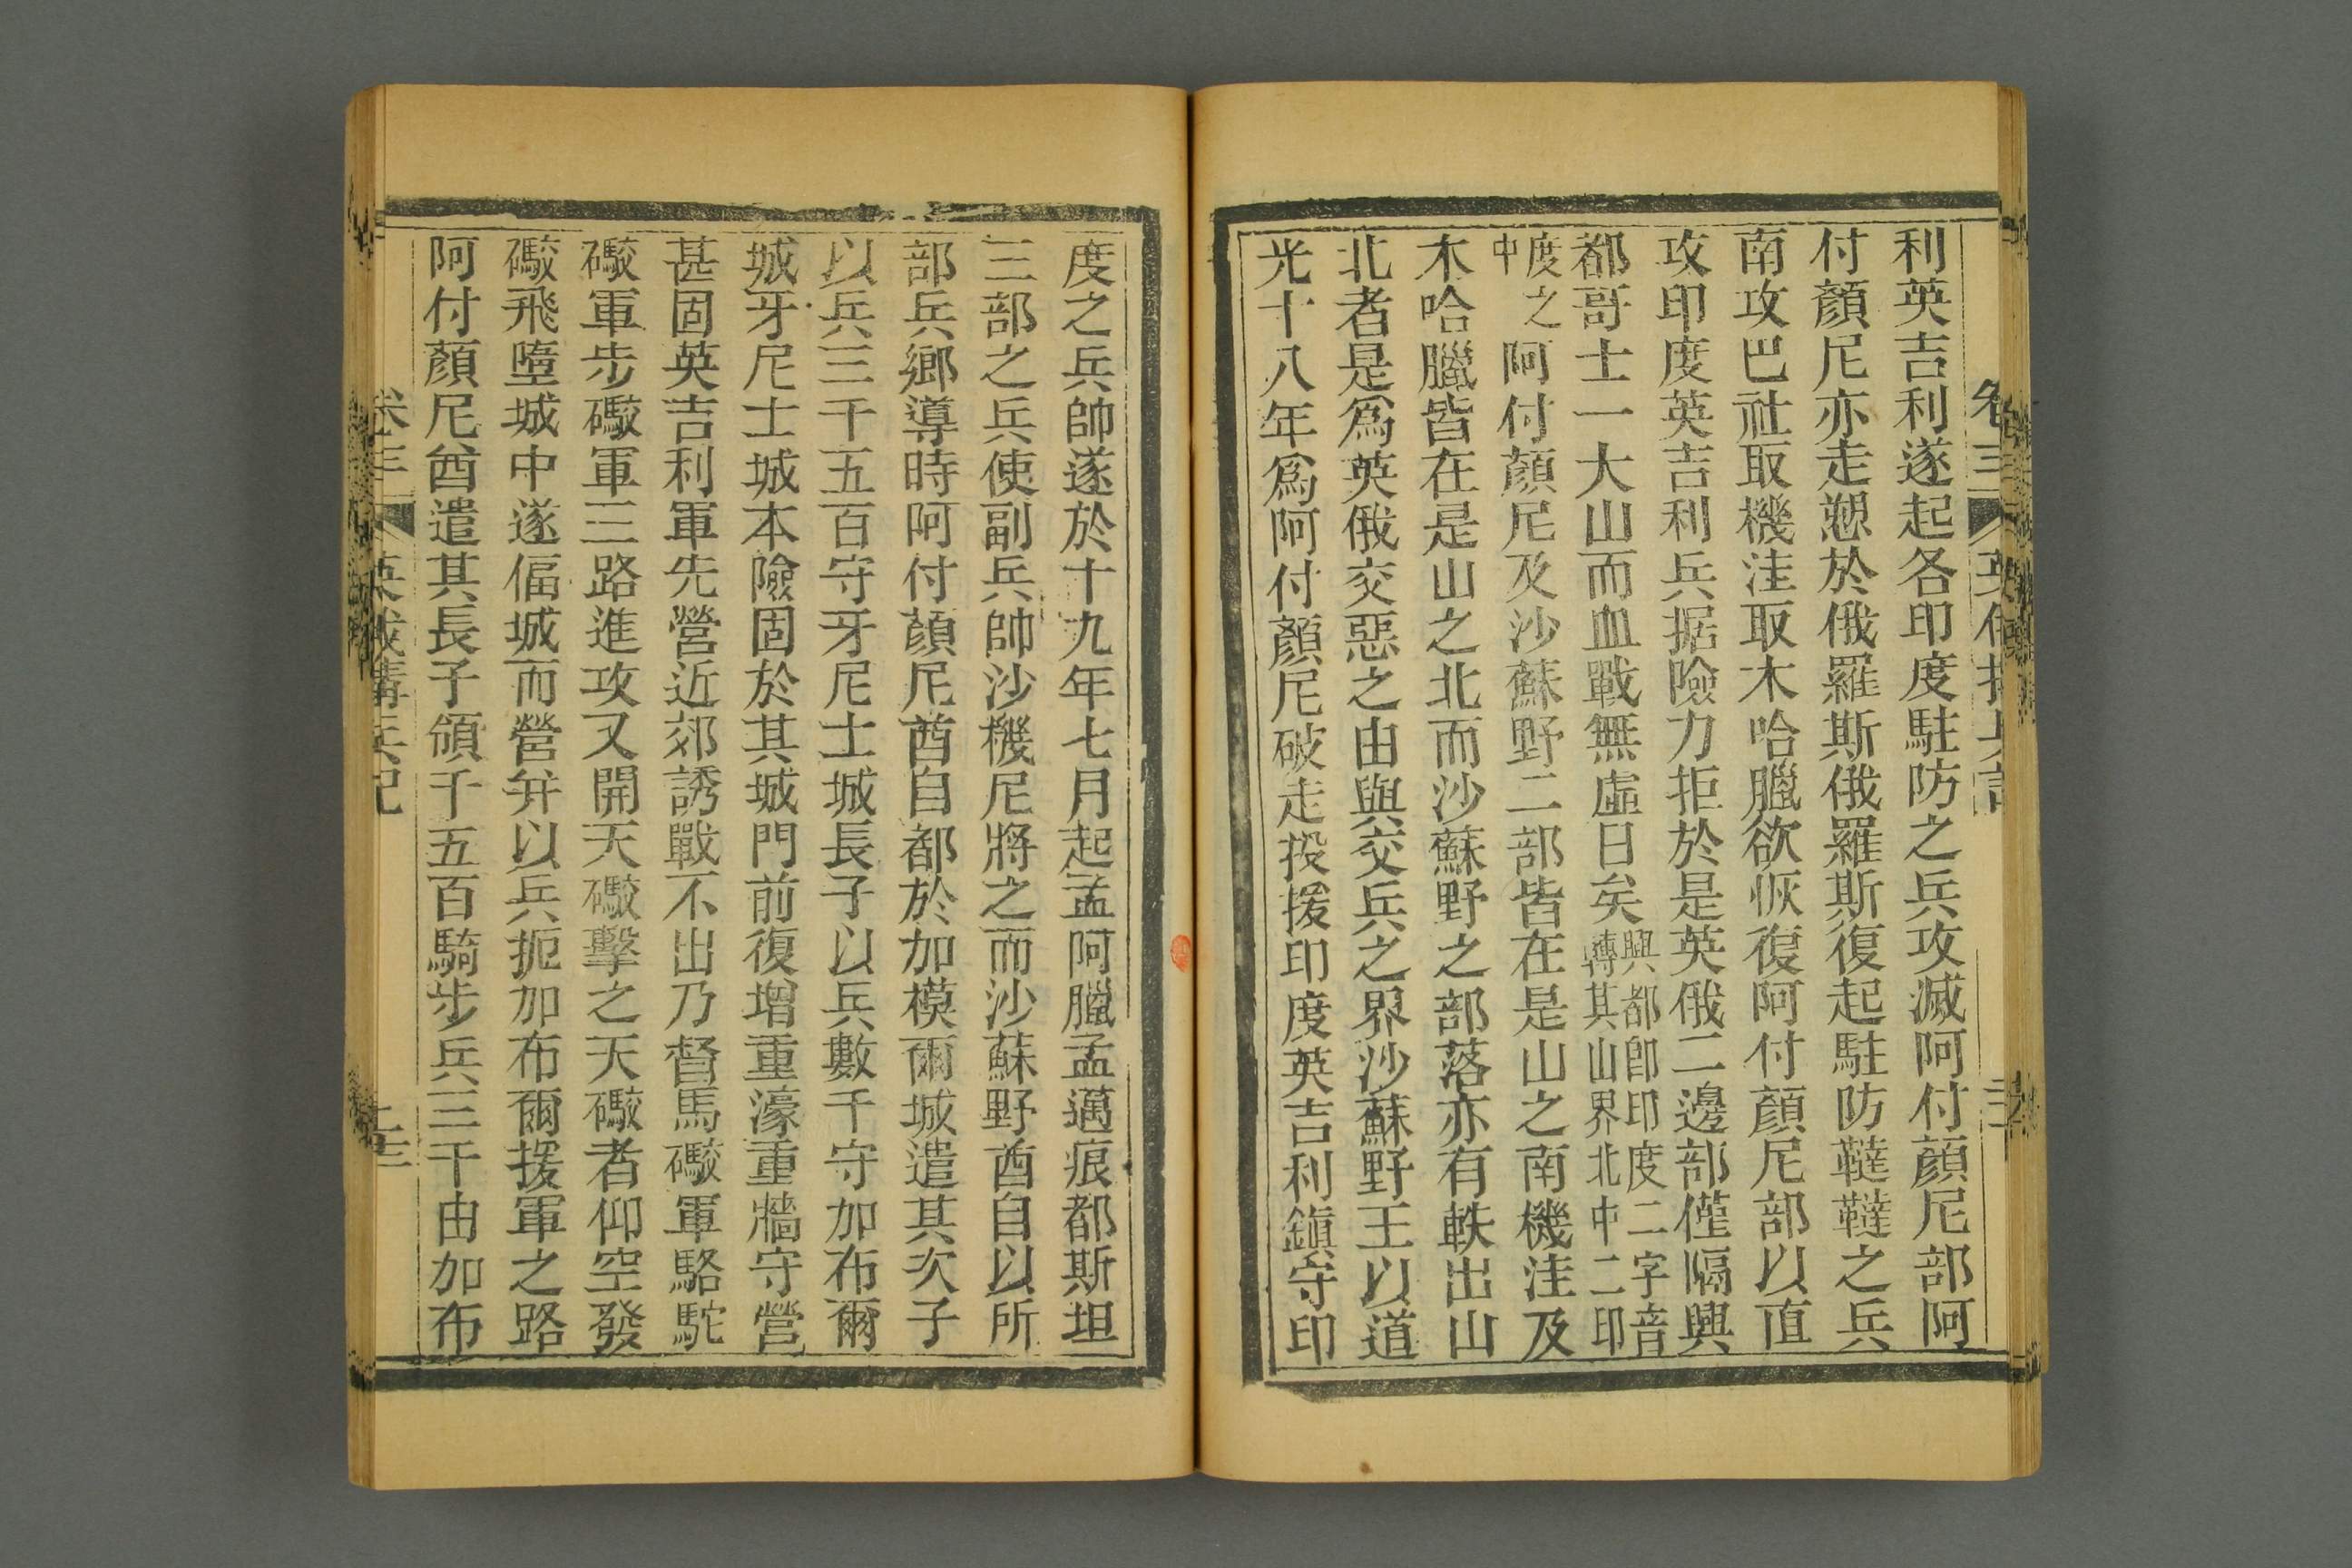 利英吉利遂起各印度駐防之兵攻滅阿付顏尼部阿
付顏尼亦走愬於俄羅斯俄羅斯復起駐防韃韃之兵
南攻巴社取機洼取木哈臘欲恢復阿付顏尼部以直
攻印度英吉利兵据險力拒於是英俄二邊部僅隔興
都哥士一大山而血戰無虛日矣
興都卽印度二字音
轉其山界北中二印
度之
中
阿付顏尼及沙蘇野二部皆在是山之南機洼及
木哈臘皆在是山之北而沙蘇野之部落亦有軼出山
北者是爲英俄交惡之由與交兵之界沙蘇野王以道
光十八年爲阿付顏尼破走投援印度英吉利鎭守印
度之兵帥遂於十九年七月起孟阿臘孟邁痕都斯坦
三部之兵使副兵帥沙機尼將之而沙蘇野酋自以所
部兵鄉導時阿付顏尼酋自都於加模爾城遣其次子
以兵三千五百守牙尼士城長子以兵數千守加布爾
城牙尼士城本險固於其城門前復增重濠重牆守營
甚固英吉利軍先營近郊誘戰不出乃督馬礮軍駱駝
礮軍步礮軍三路進攻又開天礮擊之天礮者仰空發
礮飛墮城中遂偪城而營并以兵扼加布爾援軍之路
阿付顏尼酋遣其長子領千五百騎步兵三千由加布
卷三